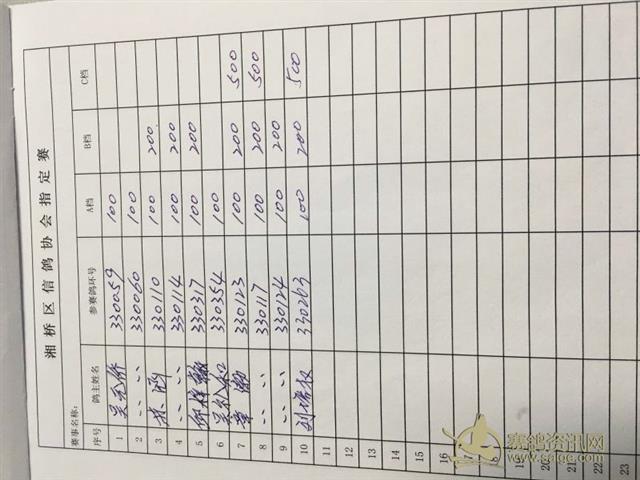 湘桥区信鸽协会指定赛
赛事名称:
序号 鸽主姓名 参赛鸽环号 A档 B档 C档
1 吴 330059 100
2 〃 330060 100
3 330110 100 200
4 〃 330114 100 200
5 330317 100 200
6 吴 330354 100
7 330123 100 200 500
8 〃 330117 100 200 500
9 〃 330124 100 200
10 刘瑞权 330263 100 200 500
11
12
13
14
15
16
17
18
19
20
21
22
23
赛鸽资讯网
www.saige.com